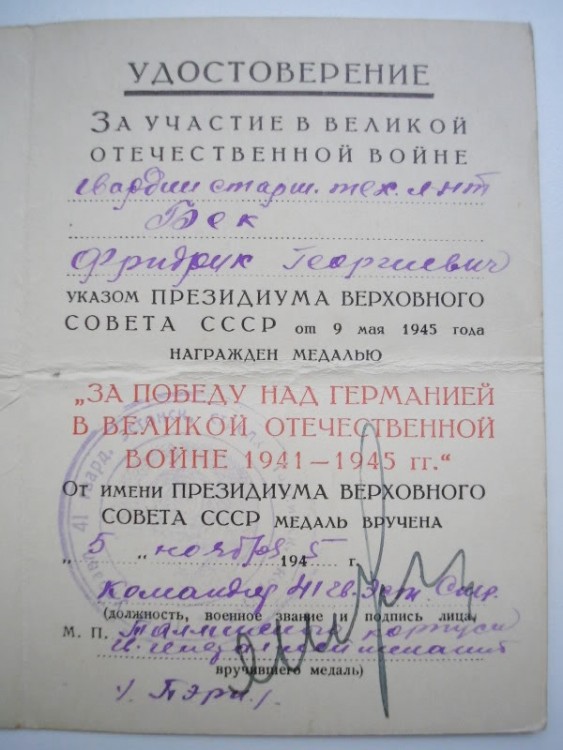 УДОСТОВЕРЕНИЕ
ЗА УЧАСТИЕ В ВЕЛИКОЙ
ОТЕЧЕСТВЕННОЙ ВОЙНЕ
гвардии старш. тех. л-нт
Бек
Фридрик Георгиевич
УКАЗОМ ПРЕЗИДИУМА ВЕРХОВНОГО
СОВЕТА СССР от 9 мая 1945 года
НАГРАЖДЕН МЕДАЛЬЮ
„ЗА ПОБЕДУ НАД ГЕРМАНИЕЙ
В ВЕЛИКОЙ ОТЕЧЕСТВЕННОЙ
ВОЙНЕ 1941—1945 гг.“
ОТ ИМЕНИ ПРЕЗИДИУМА ВЕРХОВНОГО
СОВЕТА СССР МЕДАЛЬ ВРУЧЕНА
„5„ ноября 1945 г.
Командир 41 гв. Эст. Стр.
(должность, военное звание и подпись лица,
М. П. Таллинского корпуса
гв. генерал лейтенант
вручившего медаль)
/. Пэрн /.
41 гвард.